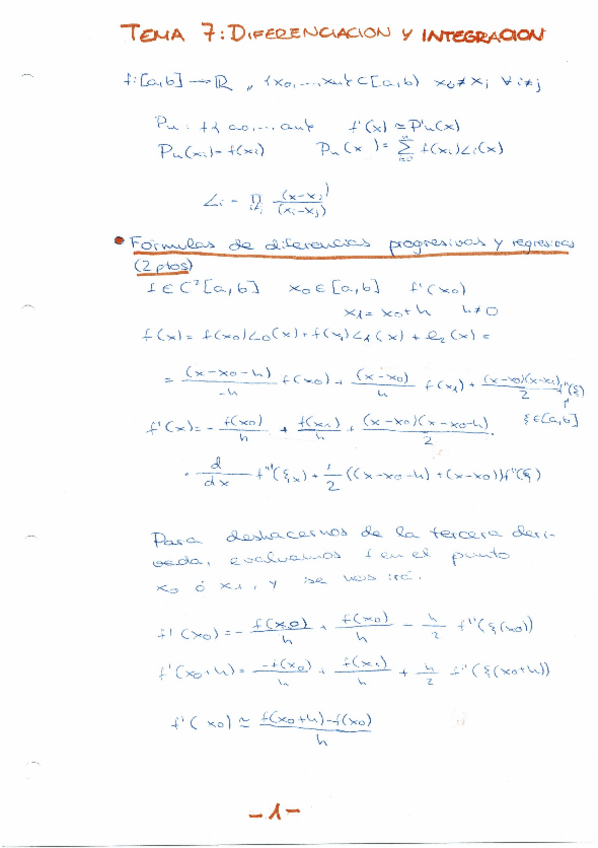 TEMA 7: DIFERENCIACION Y INTEGRACION
f: [a,b] → ℝ ,, {x0,...,xn} ⊂ [a,b) xi ≠ xj ∀ i≠j
Pn: {a0,...an} f'(x) ≃ P'n(x)
Pn(xi) = f(xi) Pn(x) = Σ f(xi) Li(x)
Li = Π (x-xj) / (xi-xj)
• Fórmulas de diferencias progresivas y regresivas
(2 ptos)
f ∈ C²[a,b] x0 ∈ [a,b] f'(x0)
x1 = x0+h h≠0
f(x) = f(x0) L0(x) + f(x1) L1(x) + e2(x) =
= (x-x0-h)/-h f(x0) + (x-x0)/h f(x1) + (x-x0)(x-x1)/2 f''(ξ)
f'(x) = - f(x0)/h + f(x1)/h + (x-x0)(x-x0-h)/2 · ξ∈[a,b]
· d/dx f''(ξx) + 1/2 ((x-x0-h) + (x-x0)) f''(ξ)
Para deshacernos de la tercera deri-
vada, evaluamos f en el punto
x0 ó x1, y se nos irá.
f'(x0) = - f(x0)/h + f(x0)/h - h/2 f''(ξ(x0))
f'(x0+h) = -f(x0)/h + f(x1)/h + h/2 f''(ξ(x0+h))
f'(x0) ≃ f(x0+h)-f(x0) / h
-1-